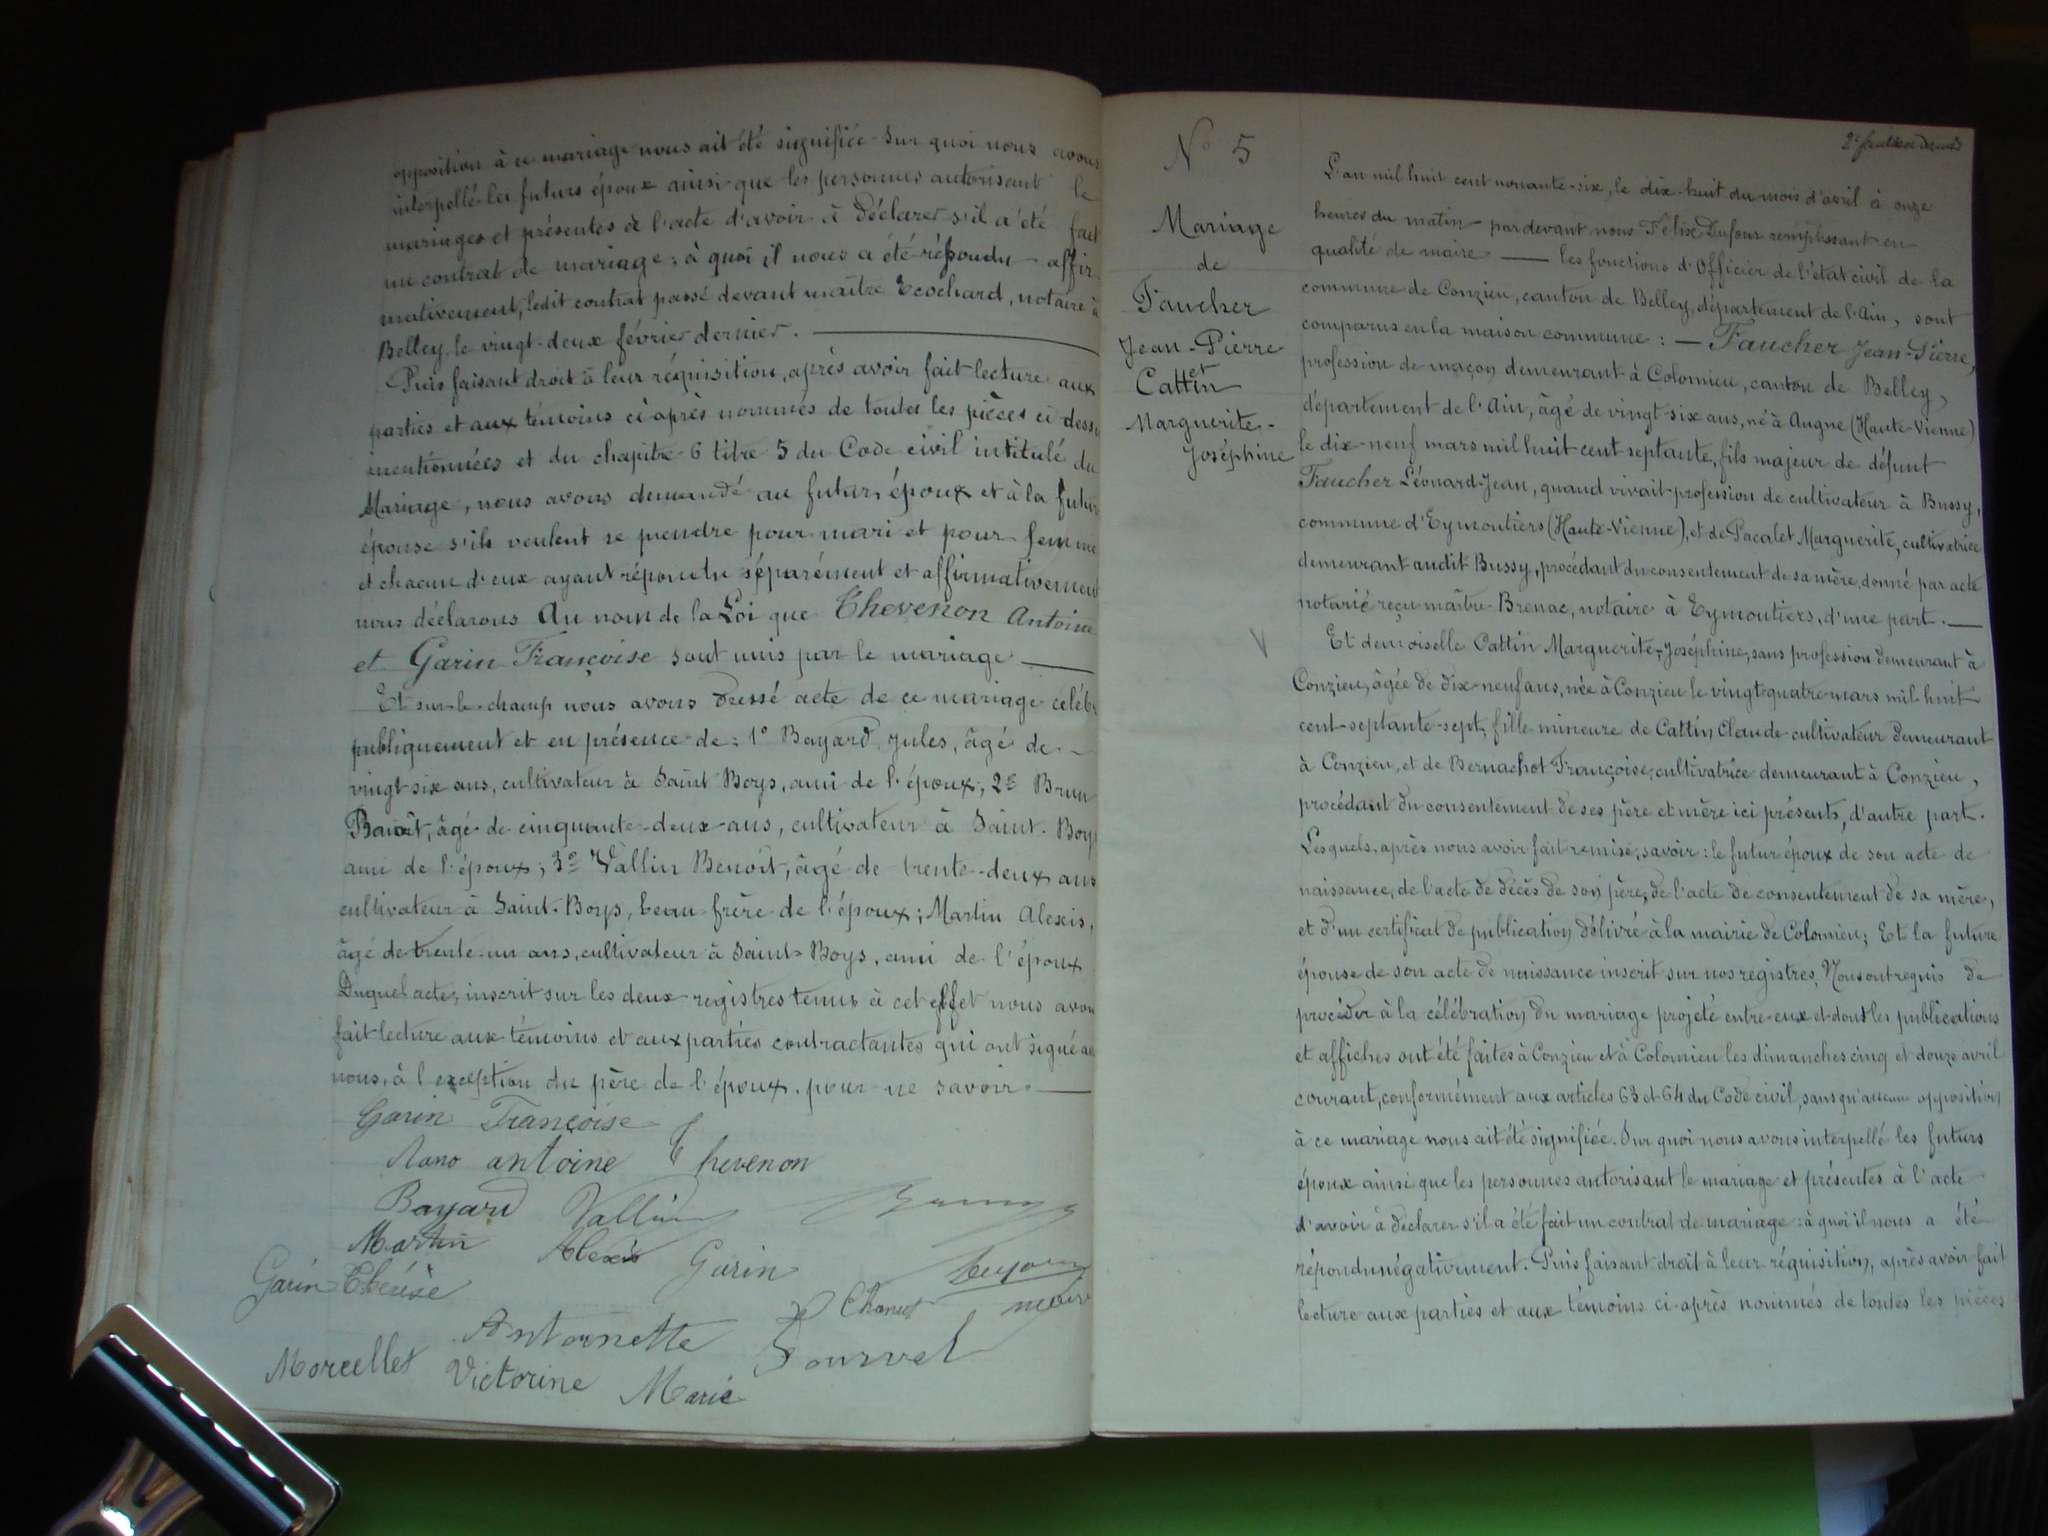 opposition à ce mariage nous ait été signifiée. Sur quoi nous avons
interpellé les futurs époux ainsi que les personnes autorisant le
mariages et présentes à l'acte d'avoir à déclarer s'il a été fait
un contrat de mariage; à quoi il nous a été répondu affir-
mativement, ledit contrat passé devant maître Ecochard, notaire à
Belley, le vingt-deux février dernier.
Puis faisant droit à leur réquisition, après avoir fait lecture aux
parties et aux témoins ci après nommés de toutes les pièces ci dess
mentionnées et du chapitre 6 titre 5 du Code civil intitulé du
Mariage, nous avons demandé au futur époux et à la futur
épouse s'ils veulent se prendre pour mari et pour femme
et chacun d'eux ayant répondu séparément et affirmativement
nous déclarons Au nom de la Loi que Thevenon Antoine
et Garin Françoise sont unis par le mariage
Et sur-le-champ nous avons dressé acte de ce mariage céléb
publiquement et en présence de: 1º Bayard Jules, âgé de
vingt-six ans, cultivateur à Saint Boys, ami de l'époux; 2º Brun
Benoît, âgé de cinquante-deux ans, cultivateur à Saint-Boys
ami de l'époux; 3º Vallin Benoît, âgé de trente-deux ans
cultivateur à Saint-Boys, beau-frère de l'époux; Martin Alexis,
âgé de trente-un ans, cultivateur à Saint-Boys, ami de l'époux
Duquel acte, inscrit sur les deux registres tenus à cet effet nous avon
fait lecture aux témoins et aux parties contractantes qui ont signé a
nous, à l'exception du père de l'époux, pour ne savoir.
Garin Françoise
antoine Thevenon
Bayard Vallin
Martin Alexis Garin
Garin Thérèse
Chanut maire
Antoinette
Marcellet Victorine Marie
Nº 5
Mariage
de
Faucher
Jean-Pierre
et
Cattin
Marguerite-
Joséphine
L'an mil huit cent nonante-six, le dix-huit du mois d'avril à onze
heures du matin par devant nous Félix Dufour remplissant en
qualité de maire les fonctions d'Officier de l'état civil de la
commune de Conzieu, canton de Belley, département de l'Ain, sont
comparus en la maison commune: — Faucher Jean-Pierre,
profession de maçon demeurant à Colomieu, canton de Belley,
département de l'Ain, âgé de vingt six ans, né à Augne (Haute-Vienne)
le dix-neuf mars mil huit cent septante, fils majeur de défunt
Faucher Léonard-Jean, quand vivait profession de cultivateur à Bussy,
commune d'Eymoutiers (Haute-Vienne), et de Pacalet Marguerite, cultivatrice
demeurant audit Bussy, procédant du consentement de sa mère donné par acte
notarié reçu maître Brenac, notaire à Eymoutiers, d'une part.
Et demoiselle Cattin Marguerite-Joséphine, sans profession demeurant à
Conzieu, âgée de dix-neuf ans, née à Conzieu le vingt-quatre mars mil huit
cent-septante-sept, fille mineure de Cattin Claude cultivateur demeurant
à Conzieu, et de Bernachot Françoise, cultivatrice demeurant à Conzieu,
procédant du consentement de ses père et mère ici présents, d'autre part.
Lesquels, après nous avoir fait remise, savoir: le futur époux de son acte de
naissance, de l'acte de décès de son père, de l'acte de consentement de sa mère,
et d'un certificat de publication délivré à la mairie de Colomieu; Et la future
épouse de son acte de naissance inscrit sur nos registres, Nous ont requis de
procéder à la célébration du mariage projeté entre eux et dont les publications
et affiches ont été faites à Conzieu et à Colomieu les dimanches cinq et douze avril
courant, conformément aux articles 63 et 64 du Code civil, sans qu'aucune opposition
à ce mariage nous ait été signifiée. Sur quoi nous avons interpellé les futurs
époux ainsi que les personnes autorisant le mariage et présentes à l'acte
d'avoir à déclarer s'il a été fait un contrat de mariage: à quoi il nous a été
répondu négativement. Puis faisant droit à leur réquisition, après avoir fait
lecture aux parties et aux témoins ci-après nommés de toutes les pièces